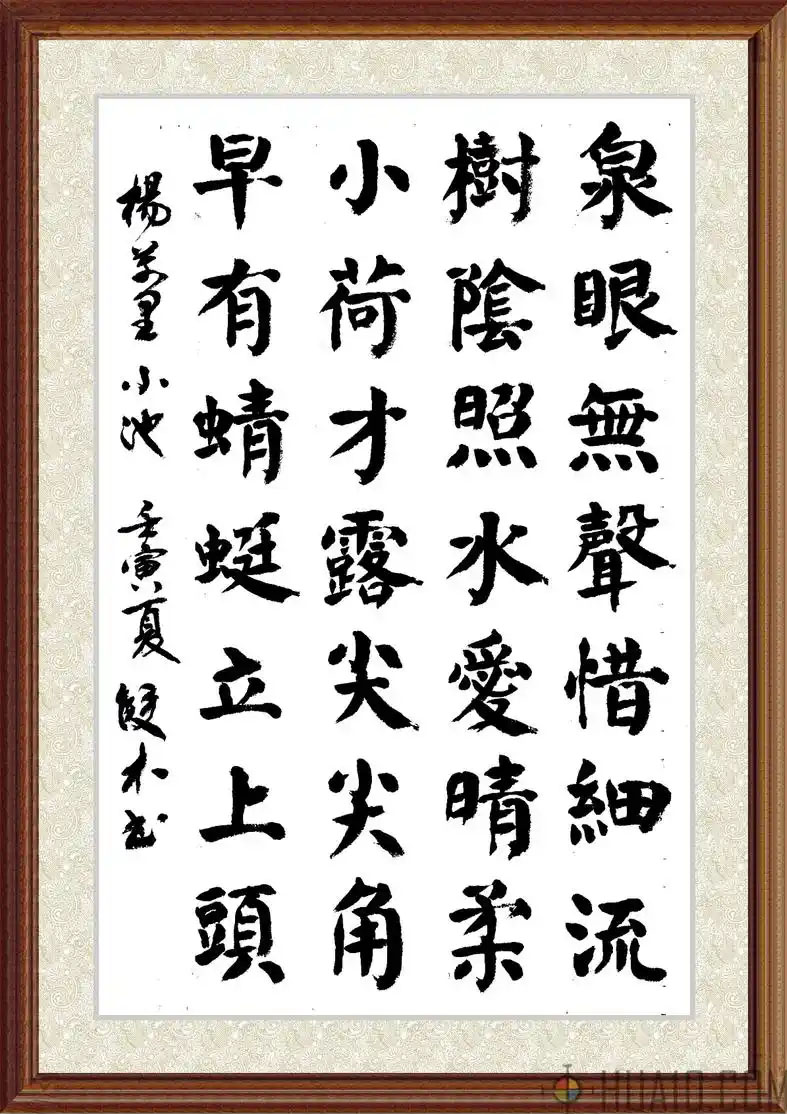 泉眼無聲惜細流
樹陰照水愛晴柔
小荷才露尖尖角
早有蜻蜓立上頭
楊萬里 小池 壬寅夏 木書
HUA10.COM